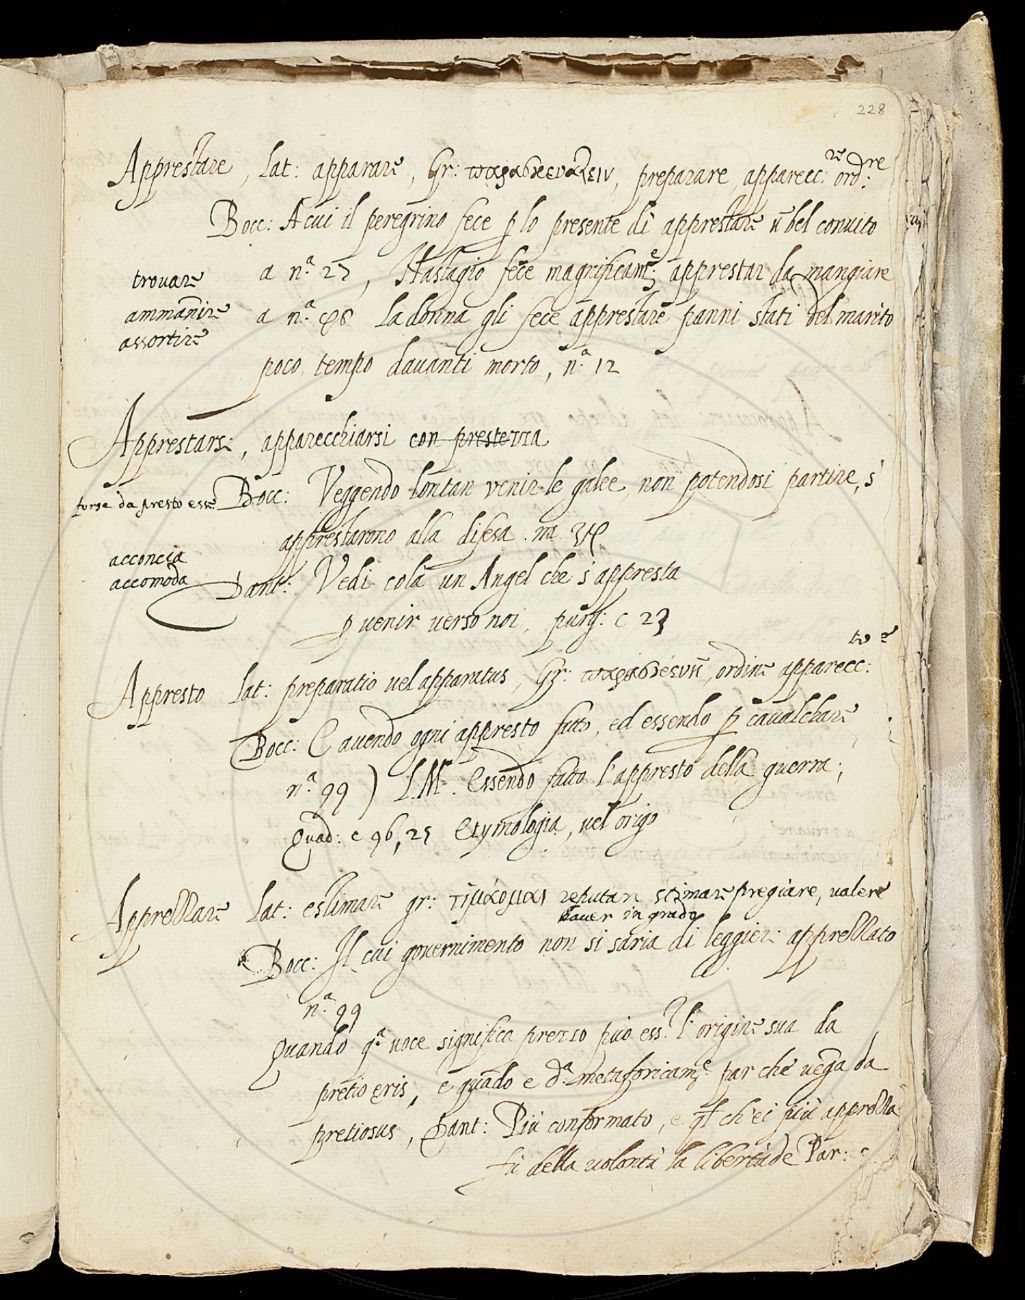 228
Apprestare, lat: apparare, Gr: παρασκευάζειν, preparare, apparec:re ord:re
Bocc: A cui il peregrino fece p lo presente dì apprestare ũ bel convito
trovare
ammãnire
assortire
a n.a 27, Nastagio fece magnificam.e apprestar da mangiare
a n.a 48 La donna gli fece apprestare panni stati del marito
poco tempo davanti morto, n.a 12
Apprestarsi, apparecchiarsi con prestezza
forse da presto esse
Bocc: Veggendo lontan venir le galee non potendosi partire, s'
apprestarono alla difesa. n.a 34
acconcia
accomoda
Dant: Vedi colà un Angel che s'appresta
p venir verso noi, purg: c 23
Appresto lat: preparatio vel apparatus, Gr: παρασκευή, ordine apparecc:to
Bocc: E avendo ogni appresto fatto, ed essendo p cavalchare
n.a 99) LM. Essendo fatto l'appresto della guerra;
Quad: c 96, 25 Etymologia, vel origo
Apprezzare lat: estimare gr: τιμάομαι reputar stimare pregiare, valere
haver in grado
Bocc: Il cui governimento non si saria di leggier apprezzato
n.a 99
Quando q.a voce significa prezzo può ess.e l'origine sua da
pretio eris, e quãdo è d.a metaforicam.e par che vẽga da
pretiosus, Dant: Più conformato, e q.l ch'ei più apprezza
fù della volontà la libertade Par: c